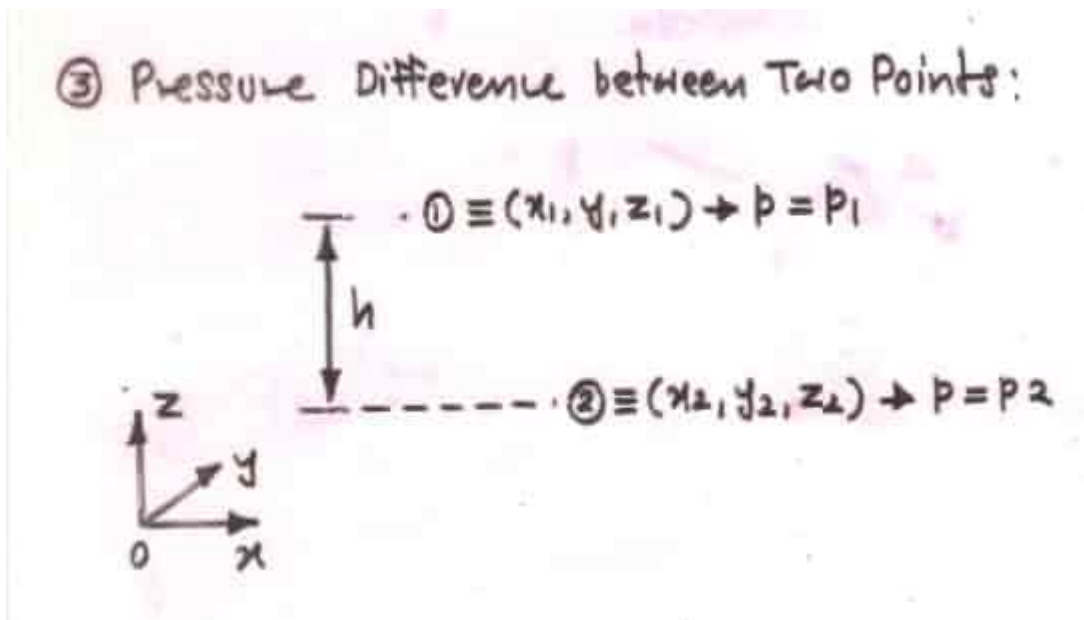 ③ Pressure Difference between Two Points:
① ≡ (x₁, y, z₁) → p = p₁
h
② ≡ (x₂, y₂, z₂) → p = p2
z
y
0 x